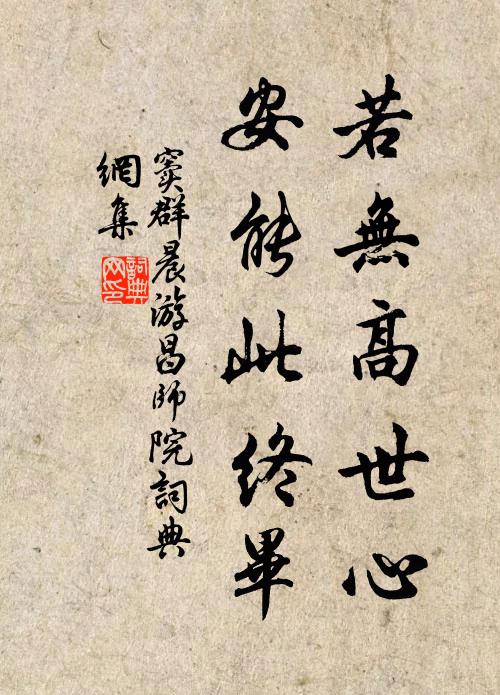 若無高世心
安能此終畢
竇群晨游昌師院詞典
網集
詞典
网印